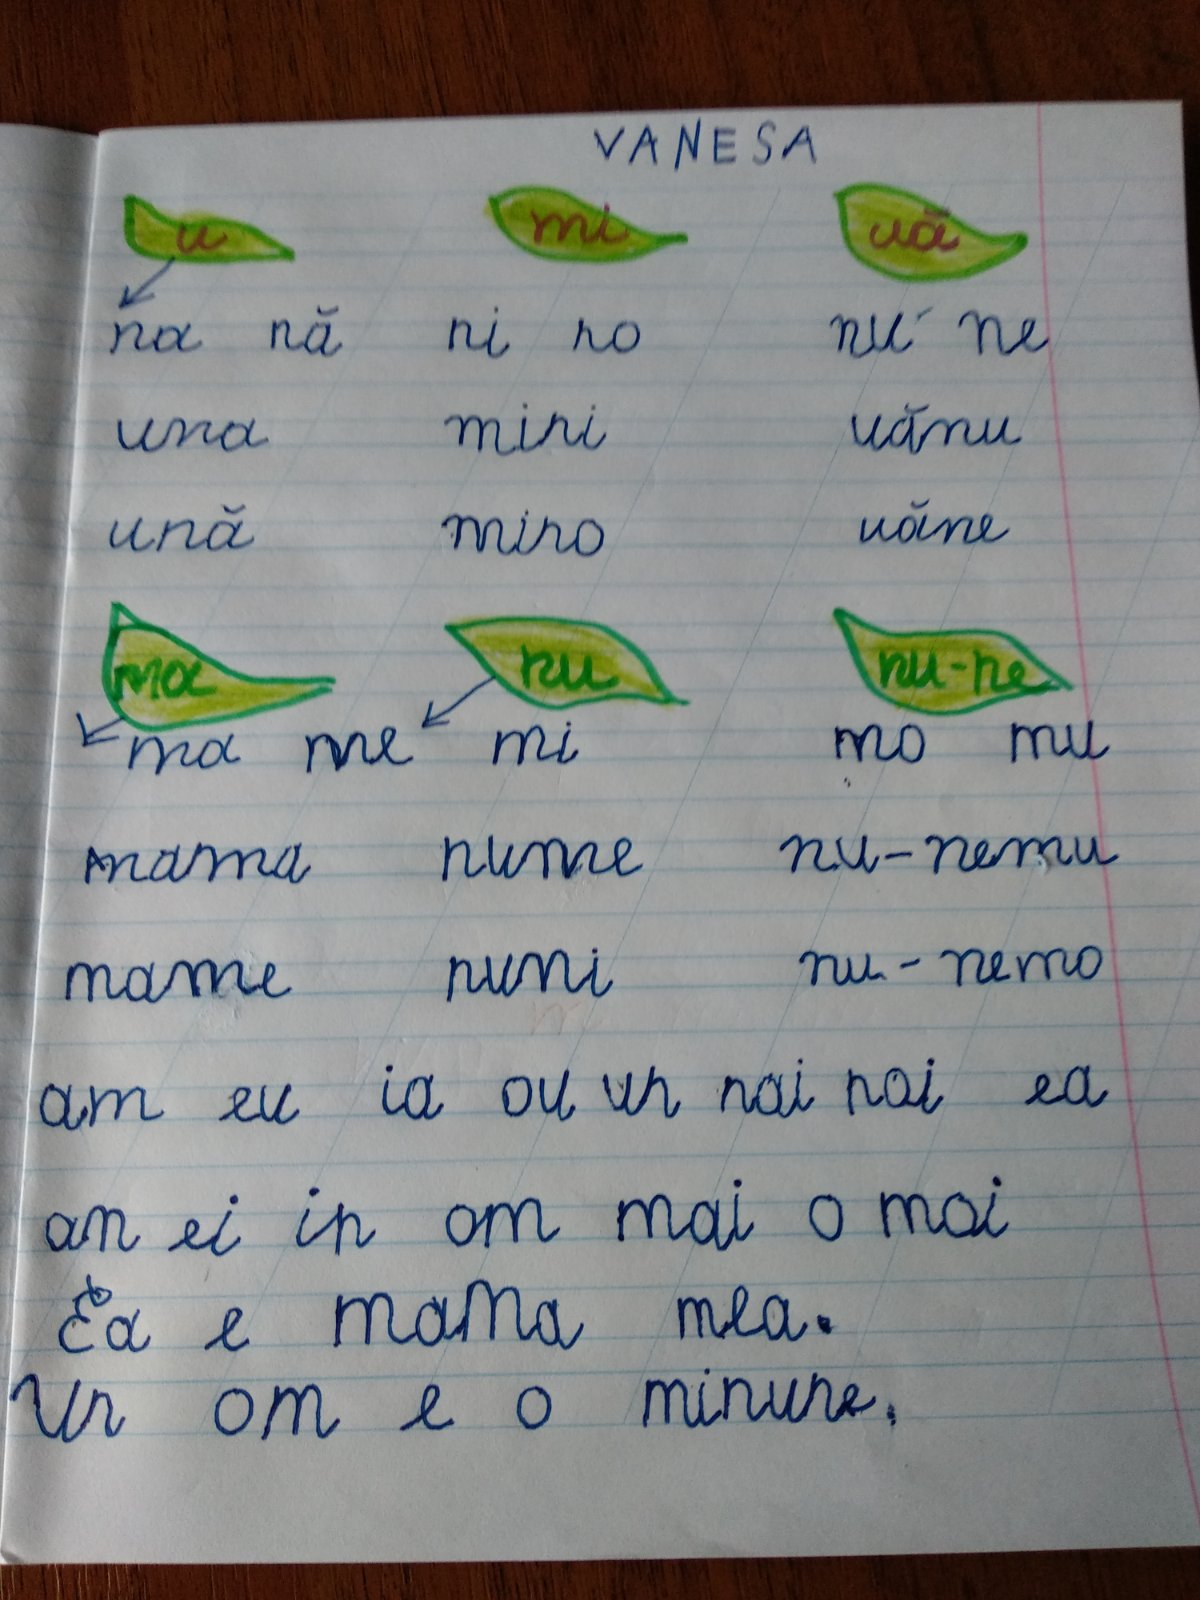 VANESA
u mi uă
na nă ni no nu ne
una mini uănu
ună mino uăne
ma nu nu-ne
ma me mi mo mu
mama nume nu-nemu
mame numi nu-nemo
am eu ia ou un nai noi ea
an ei in om mai o moi
Ea e mama mea.
Un om e o minune.